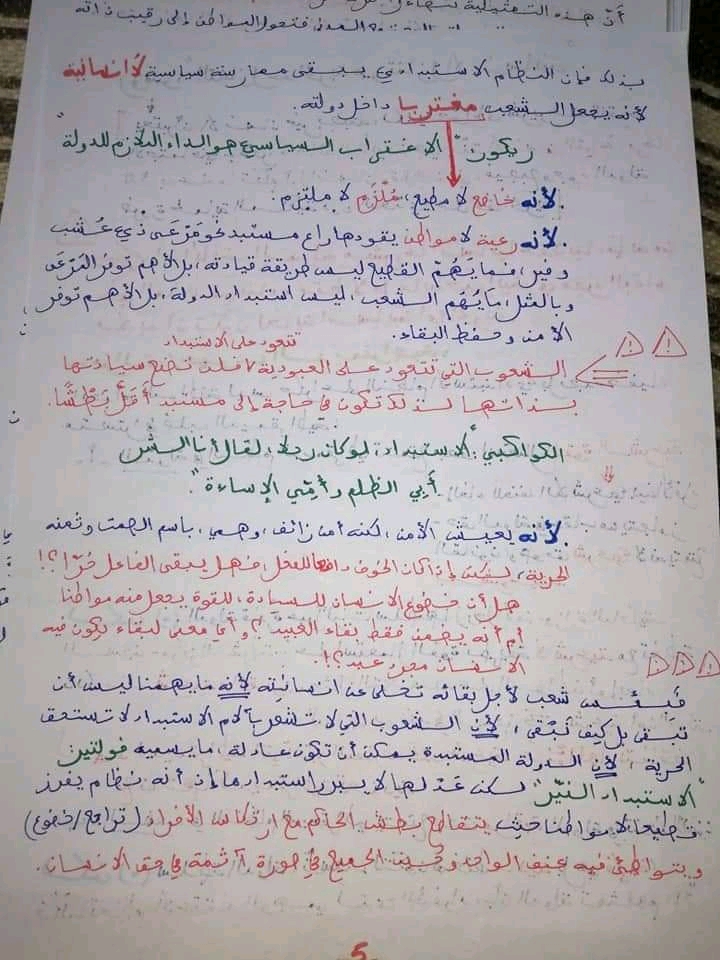 أنّ هذه التمثيلية
فتحول المواطن إلى رقيب ذاته
بذلك فإن النظام الاستبدادي يبقى ممارسة سياسية لا إنسانية
لأنه يجعل الشعب مغتربا داخل دولته.
ويكون "الاغتراب السياسي هو الداء الملازم للدولة"
. لأنه خاضع لا مطيع، مُلْزَم لا ملتزم.
. لأنه رعية لا مواطن يقودها راع مستبد نحو مَرْعَى ذي عُشب
وفير، فما يهُمّ القطيع ليس طريقة قيادته، بل الأهم توفر المَرْعَى
وبالمثل، ما يُهم الشعب، ليس استبداد الدولة، بل الأهم توفر
الأمن وحفظ البقاء.
تتعود على الاستبداد
الشعوب التي تتعود على العبودية، فلن تضع سيادتها
بذاتها لذلك تكون في حاجة إلى مستبد أَقَلَّ بَطْشًا.
الكواكبي: "الاستبداد، لو كان رجلا، لقال أنا الشر
أبي الظلم وأمّي الإساءة".
. لأنه يعيش الأمن، لكنه أمن زائف، وهمي، باسم الصمت وثمنه
الحرية، لكن إذا كان الخوف دافعا للفعل، فهل يبقى الفاعل حُرّا؟!
هل أن خضوع الإنسان للسيادة، للقوة يجعل منه مواطنا
أم أنه يضمن فقط بقاء العبيد؟ وأي معنى لبقاء يكون فيه
الإنسان مجرد عبد؟!.
فَبِئْسَ شعب لأجل بقائه تخلى عن انسانيته لأنه ما يهمنا ليس أن
نبقى بل كيف نَبْقَى، لأن الشعوب التي لا تشعر بآلام الاستبداد لا تستحق
الحرية، لأن الدولة المستبدة يمكن أن تكون عادلة، ما يسميه فولتير
"الاستبداد النيّر" لكن عَدْلها لا يبرر استبدادها إذ أنه نظام يفرز
قطيعا لا مواطنا حيث يتقاطع بطش الحاكم مع ارتكاس الأفراد (تراجع/خضوع)
ويتواطئ فيه عنف الواحد وجُبْن الجميع في صورة آثمة في حق الإنسان.
5